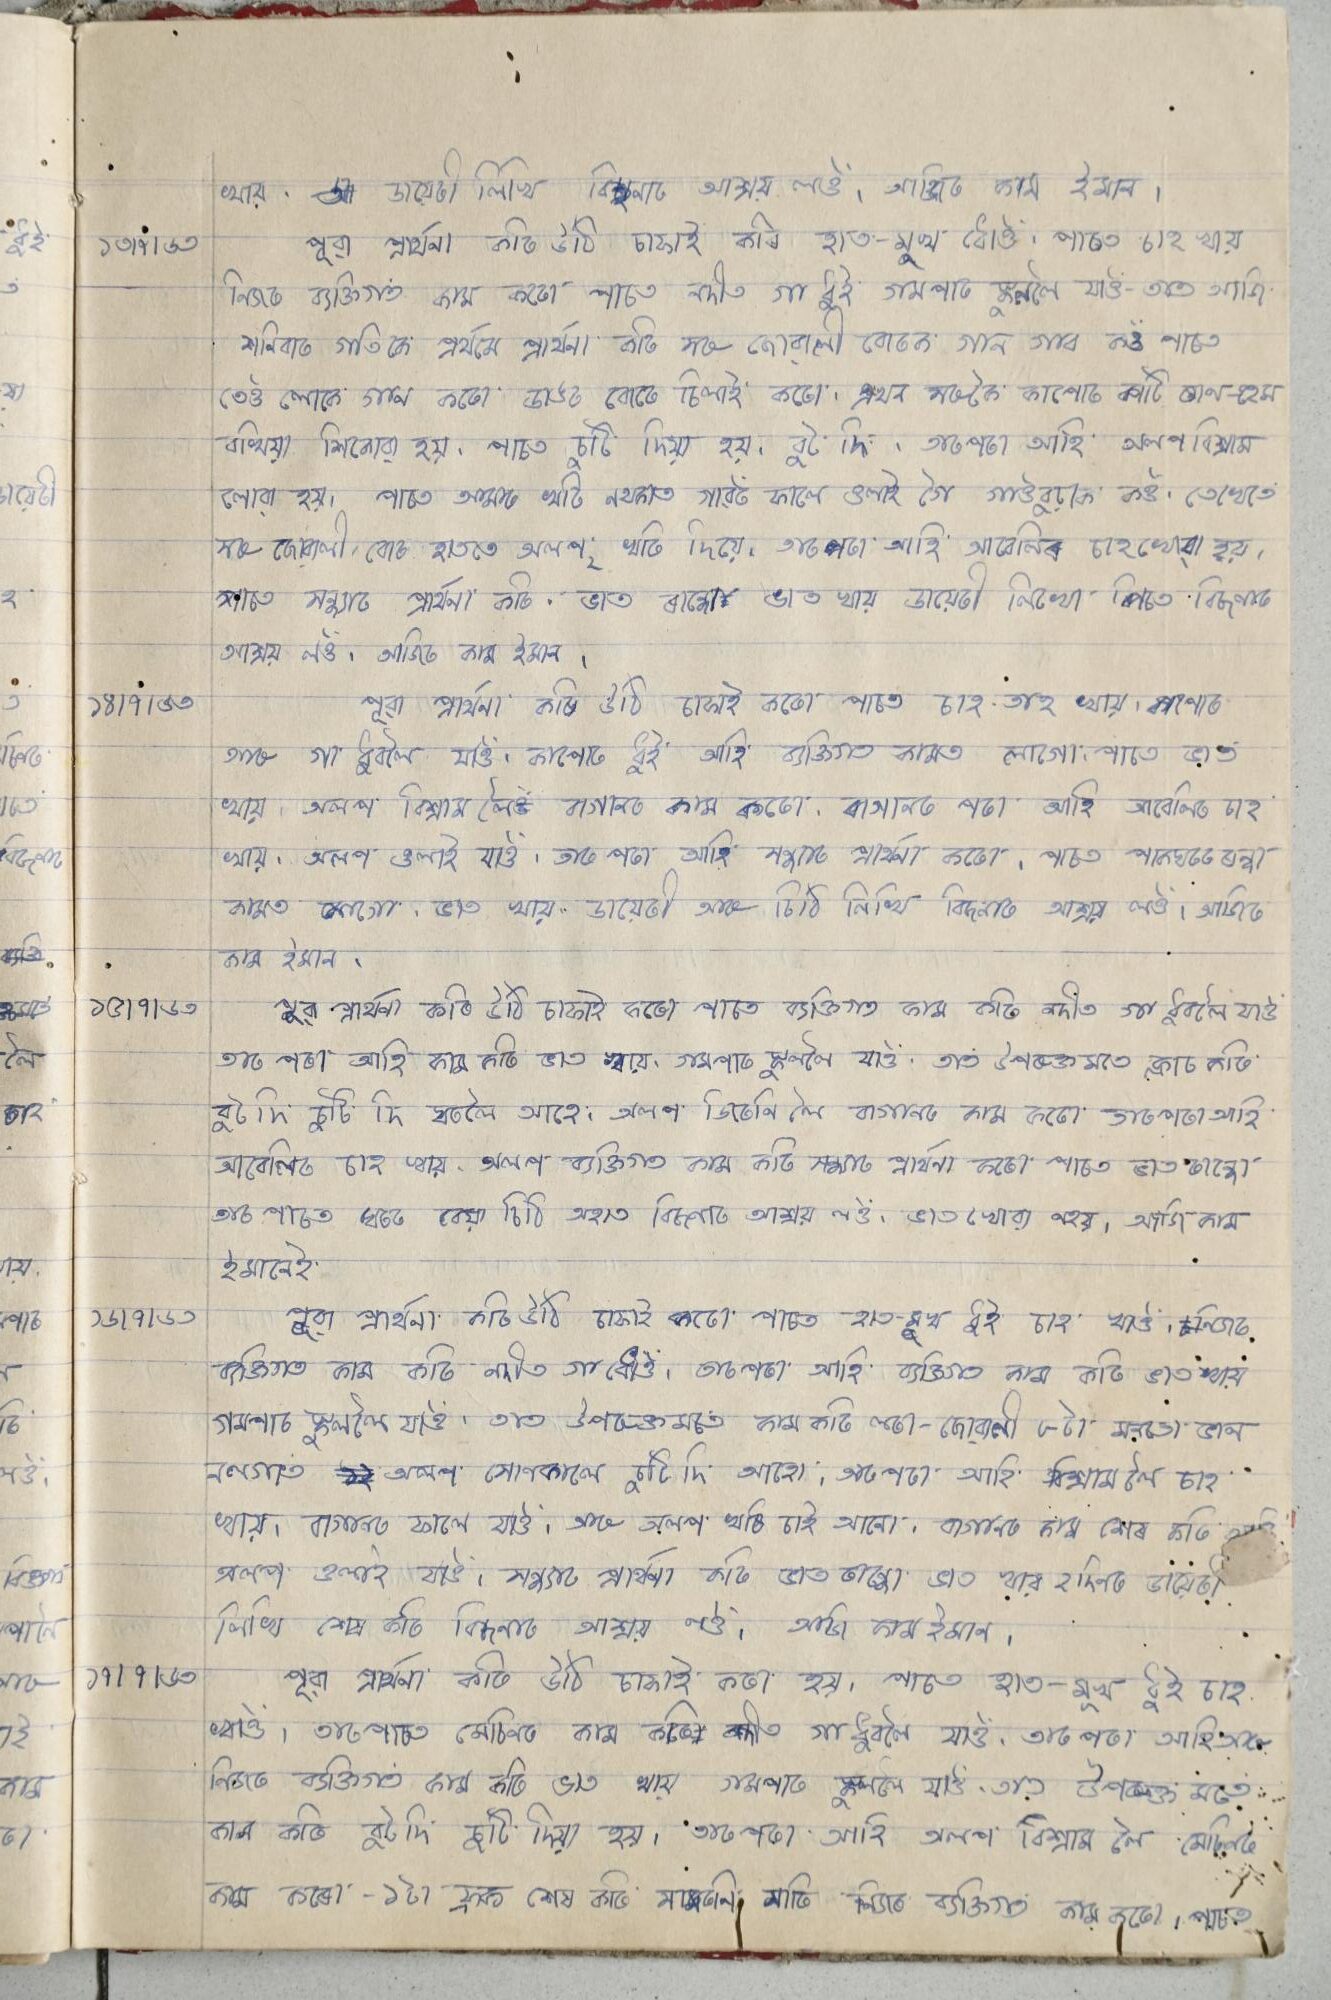 খায়. ডায়েৰী লিখি বিছনাত আশ্ৰয় লওঁ, আজিৰ কাম ইমান,
১৩|৭|৬৩ পুৱা প্ৰাৰ্থনা কৰি উঠি চাফাই কৰি হাত-মুখ ধোওঁ. পাচত চাহ খায়
নিজৰ ব্যক্তিগত কাম কৰো পাচত নদীত গা ধুই গমপাত স্কুললৈ যাওঁ-তাত আজি
শনিবাৰ গতিকে প্ৰৰ্থমে প্ৰাৰ্থনা কৰি সৰু ছোৱালী বোৰক গান গাব কওঁ পাচত
তেওঁ লোকে গান কৰো ডাঙৰ বোৰে চিলাই কৰো. এখন সৰুকৈ কাপোৰ কাটি
শিকোৱা হয়, পাচত চুটি দিয়া হয়. বুট দি. তাৰপৰা আহি অলপ বিশ্ৰাম
লোৱা হয়, পাচত আমাৰ খৰি নথকাত গাৱঁৰ ফালে ওলাই গৈ গাওঁবুঢ়াক কওঁ. তেখেতে
সৰু ছোৱালী বোৰ হাততে অলপ খৰি দিয়ে, তাৰ পৰা আহি আবেলিৰ চাহখোৱা হয়,
পাচত সন্ধ্যাৰ প্ৰাৰ্থনা কৰি. ভাত ৰান্ধো ভাত খায় ডায়েৰী লিখো পিচত বিছনাত
আশ্ৰয় লওঁ, আজিৰ কাম ইমান,
১৪|৭|৬৩ পুৱা প্ৰাৰ্থনা কৰি উঠি চাফাই কৰো পাচত চাহ তাহ খায়, কাপোৰ
আৰু গা ধুবলৈ যাওঁ. কাপোৰ ধুই আহি ব্যক্তিগত কামত লাগো. পাচে ভাত
খায়, অলপ বিশ্ৰাম লৈ বাগানৰ কাম কৰো. বাগানৰ পৰা আহি আবেলিৰ চাহ
খায়. অলপ ওলাই যাওঁ. তাৰ পৰা আহি সন্ধ্যাৰ প্ৰাৰ্থনা কৰো, পাচত পাকঘৰৰ ৰন্ধা
কামত লাগো. ভাত খায়. ডায়েৰী আৰু চিঠি লিখি বিছনাত আশ্ৰয় লওঁ, আজিৰ
কাম ইমান,
১৫|৭|৬৩ পুৱা প্ৰাৰ্থনা কৰি উঠি চাফাই কৰো পাচে ব্যক্তিগত কাম কৰি নদীত গা ধুবলৈ যাওঁ
তাৰ পৰা আহি কাম কৰি ভাত খায়. গমপাত স্কুললৈ যাওঁ. তাত উপৰুক্ত মতে ক্লাচ কৰি
বুট দি চুটি দি ঘৰলৈ আহে. অলপ জিৰেনি লৈ বাগানৰ কাম কৰো তাৰপৰা আহি
আবেলিৰ চাহ খায়. অলপ ব্যক্তিগত কাম কৰি সন্ধ্যাৰ প্ৰাৰ্থনা কৰো পাচত ভাত ৰান্ধো
তাৰ পাচত ঘৰৰ বেয়া চিঠি অহাত বিছনাত আশ্ৰয় লওঁ. ভাত খোৱা নহয়, আজি কাম
ইমানেই
১৬|৭|৬৩ পুৱা প্ৰাৰ্থনা কৰি উঠি চাফাই কৰো পাচত হাত-মুখ ধুই চাহ খাওঁ, নিজৰ
ব্যক্তিগত কাম কৰি নদীত গা ধোওঁ, তাৰপৰা আহি ব্যক্তিগত কাম কৰি ভাত খায়
গমপাত স্কুললৈ যাওঁ, তাত উপৰুক্ত মতে কাম কৰি লৰা-ছোৱালী ৮টা মৰতো ভাল
নলগাত অলপ সোনকালে চুটি দি আহো, তাৰ পৰা আহি বিশ্ৰাম লৈ চাহ
খায়, বাগানৰ ফালে যাওঁ, আৰু অলপ খৰি চাই আনো, বাগানৰ কাম শেষ কৰি
অলপ ওলাই যাওঁ, সন্ধ্যাৰ প্ৰাৰ্থনা কৰি ভাত ৰান্ধো ভাত খায় ২ দিনৰ ডায়েৰী
লিখি শেষ কৰি বিছনাত আশ্ৰয় লওঁ, আজি কাম ইমান,
১৭|৭|৬৩ পুৱা প্ৰাৰ্থনা কৰি উঠি চাফাই কৰা হয়, পাচত হাত-মুখ ধুই চাহ
খাওঁ, তাৰপাচত মেচিনৰ কাম কৰি নদীত গা ধুবলৈ যাওঁ, তাৰ পৰা আহি আৰু
নিজৰ ব্যক্তিগত কাম কৰি ভাত খায় গমপাত স্কুললৈ যাওঁ. তাত উপৰুক্ত মতে
কাম কৰি বুট দি চুটি দিয়া হয়, তাৰপৰা আহি অলপ বিশ্ৰাম লৈ মেচিনৰ
কাম কৰো - ১টা ফ্ৰক শেষ কৰি সামৰণি মাৰি নিজৰ ব্যক্তিগত কাম কৰো, পাচত